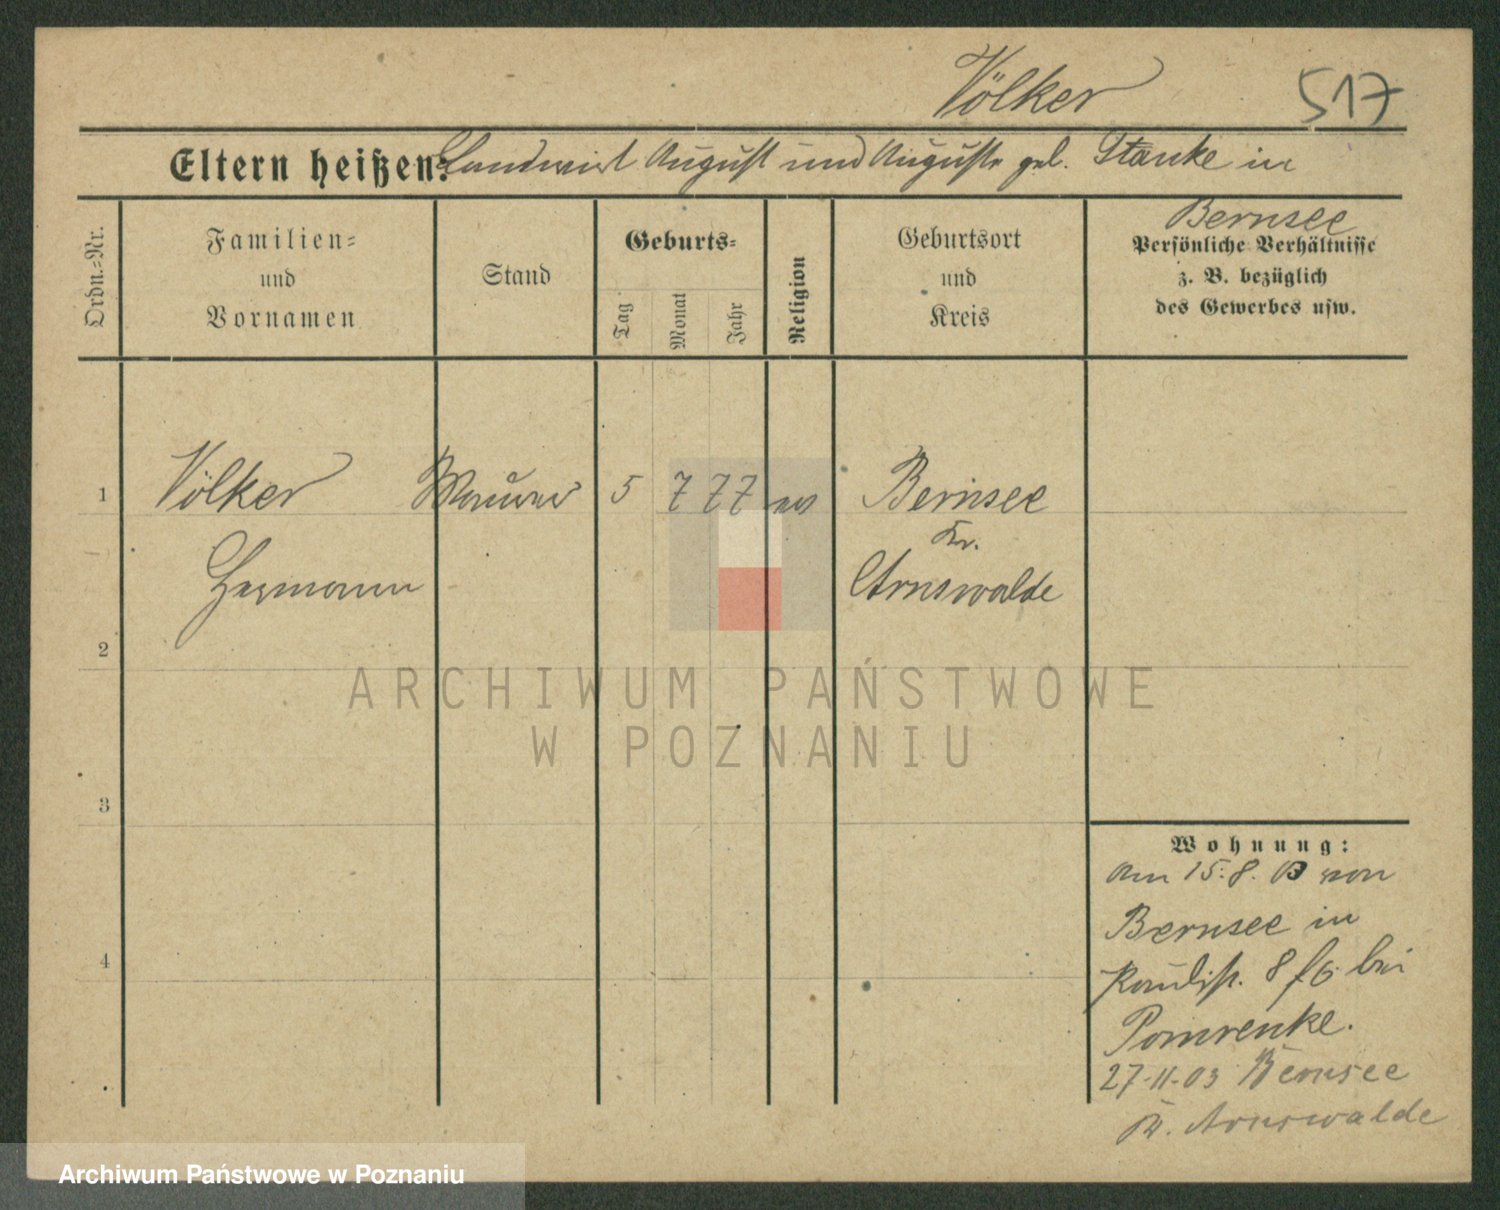 Völker 517
Eltern heißen: Landwirt August und Auguste geb. Stanke in
Bernsee
Ordn.-Nr.
Familien-
und
Vornamen
Stand
Geburts-
Tag
Monat
Jahr
Religion
Geburtsort
und
Kreis
Persönliche Verhältnisse
z. B. bezüglich
des Gewerbes usw.
1 Völker Maurer 5 7 77 ev Bernsee
Kr.
Hermann Arnswalde
2
ARCHIWUM PAŃSTWOWE
W POZNANIU
3
Wohnung:
am 15. 8. 03 von
Bernsee in
4
8 bei
Pomrenke.
27-11-03 Bernsee
Kr. Arnswalde
Archiwum Państwowe w Poznaniu